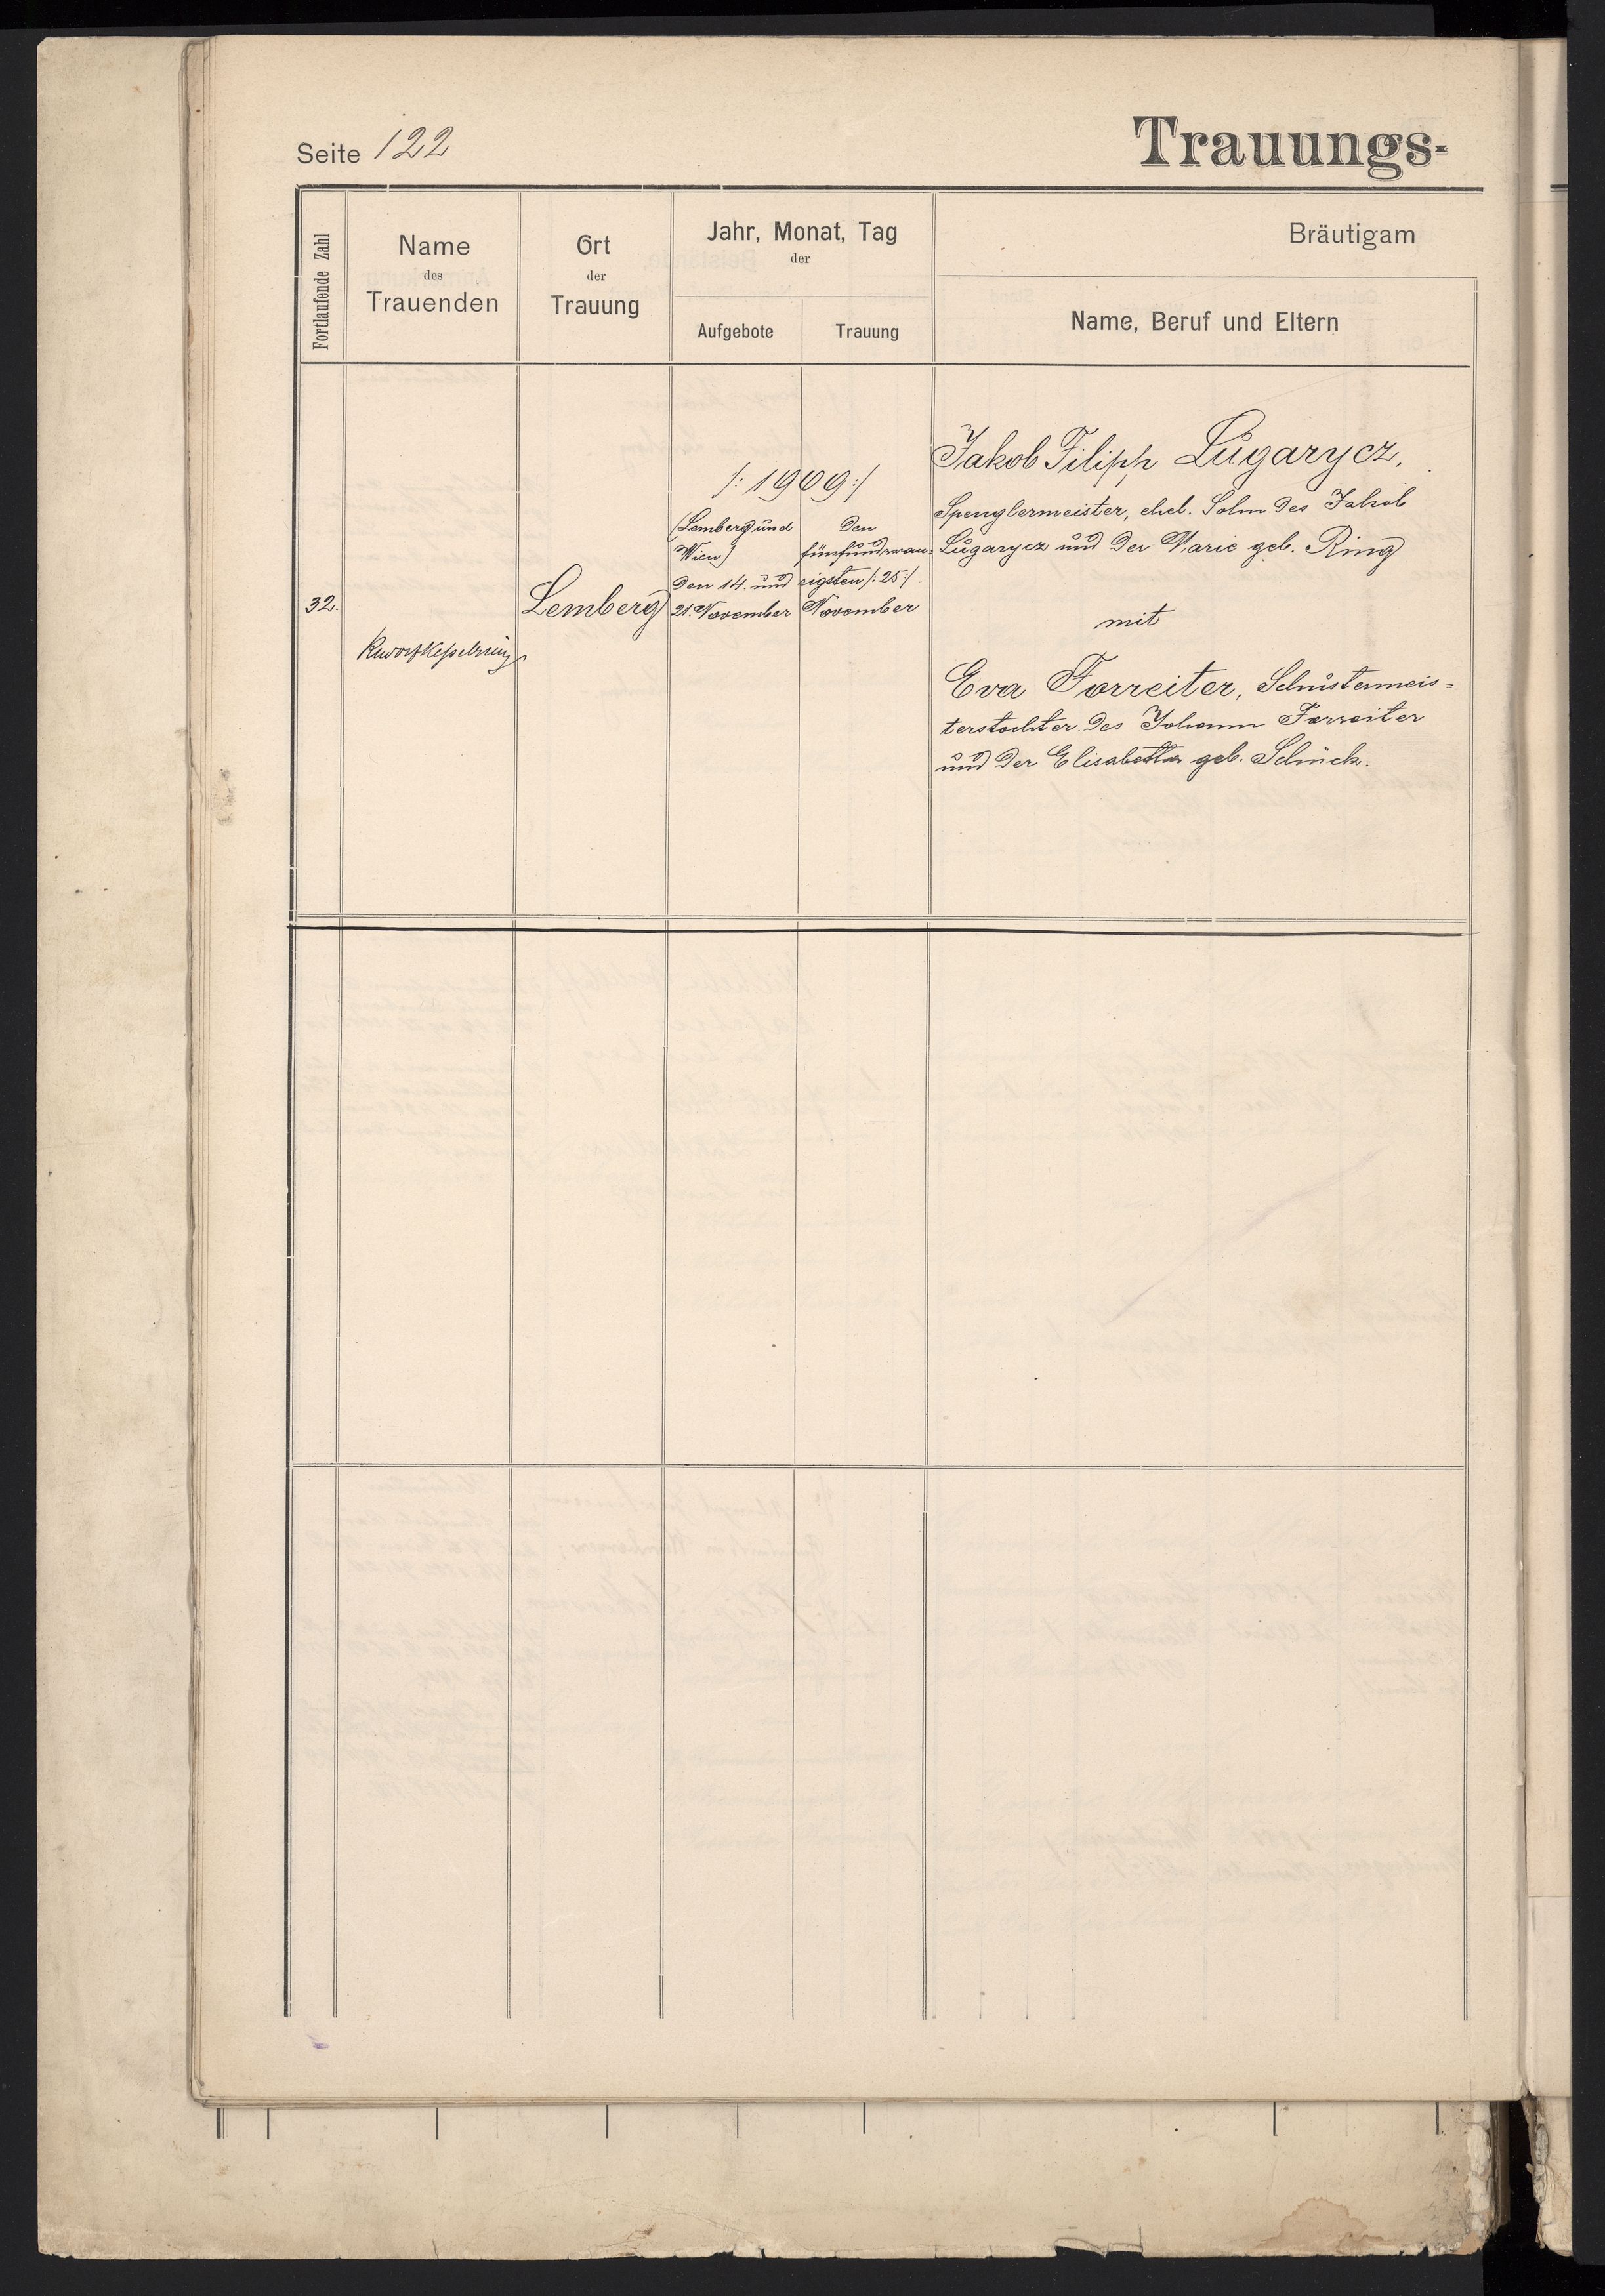 Seite 122
Trauungs-
Fortlaufende Zahl
Name
des
Trauenden
Ort
der
Trauung
Jahr, Monat, Tag
der
Aufgebote
Trauung
Bräutigam
Name, Beruf und Eltern
32.
Lemberg
/: 1909 :/
(Lemberg und
Wien)
den 14. und
21. November
den
fünfundzwan-
zigsten /: 25 :/
November
Jakob Filipp Lugarycz,
Spenglermeister, ehel. Sohn des Jakob
Lugarycz und der Marie geb. Ring
mit
Eva Forreiter, Schustermeis-
terstochter des Johann Forreiter
und der Elisabetha geb. Schück.